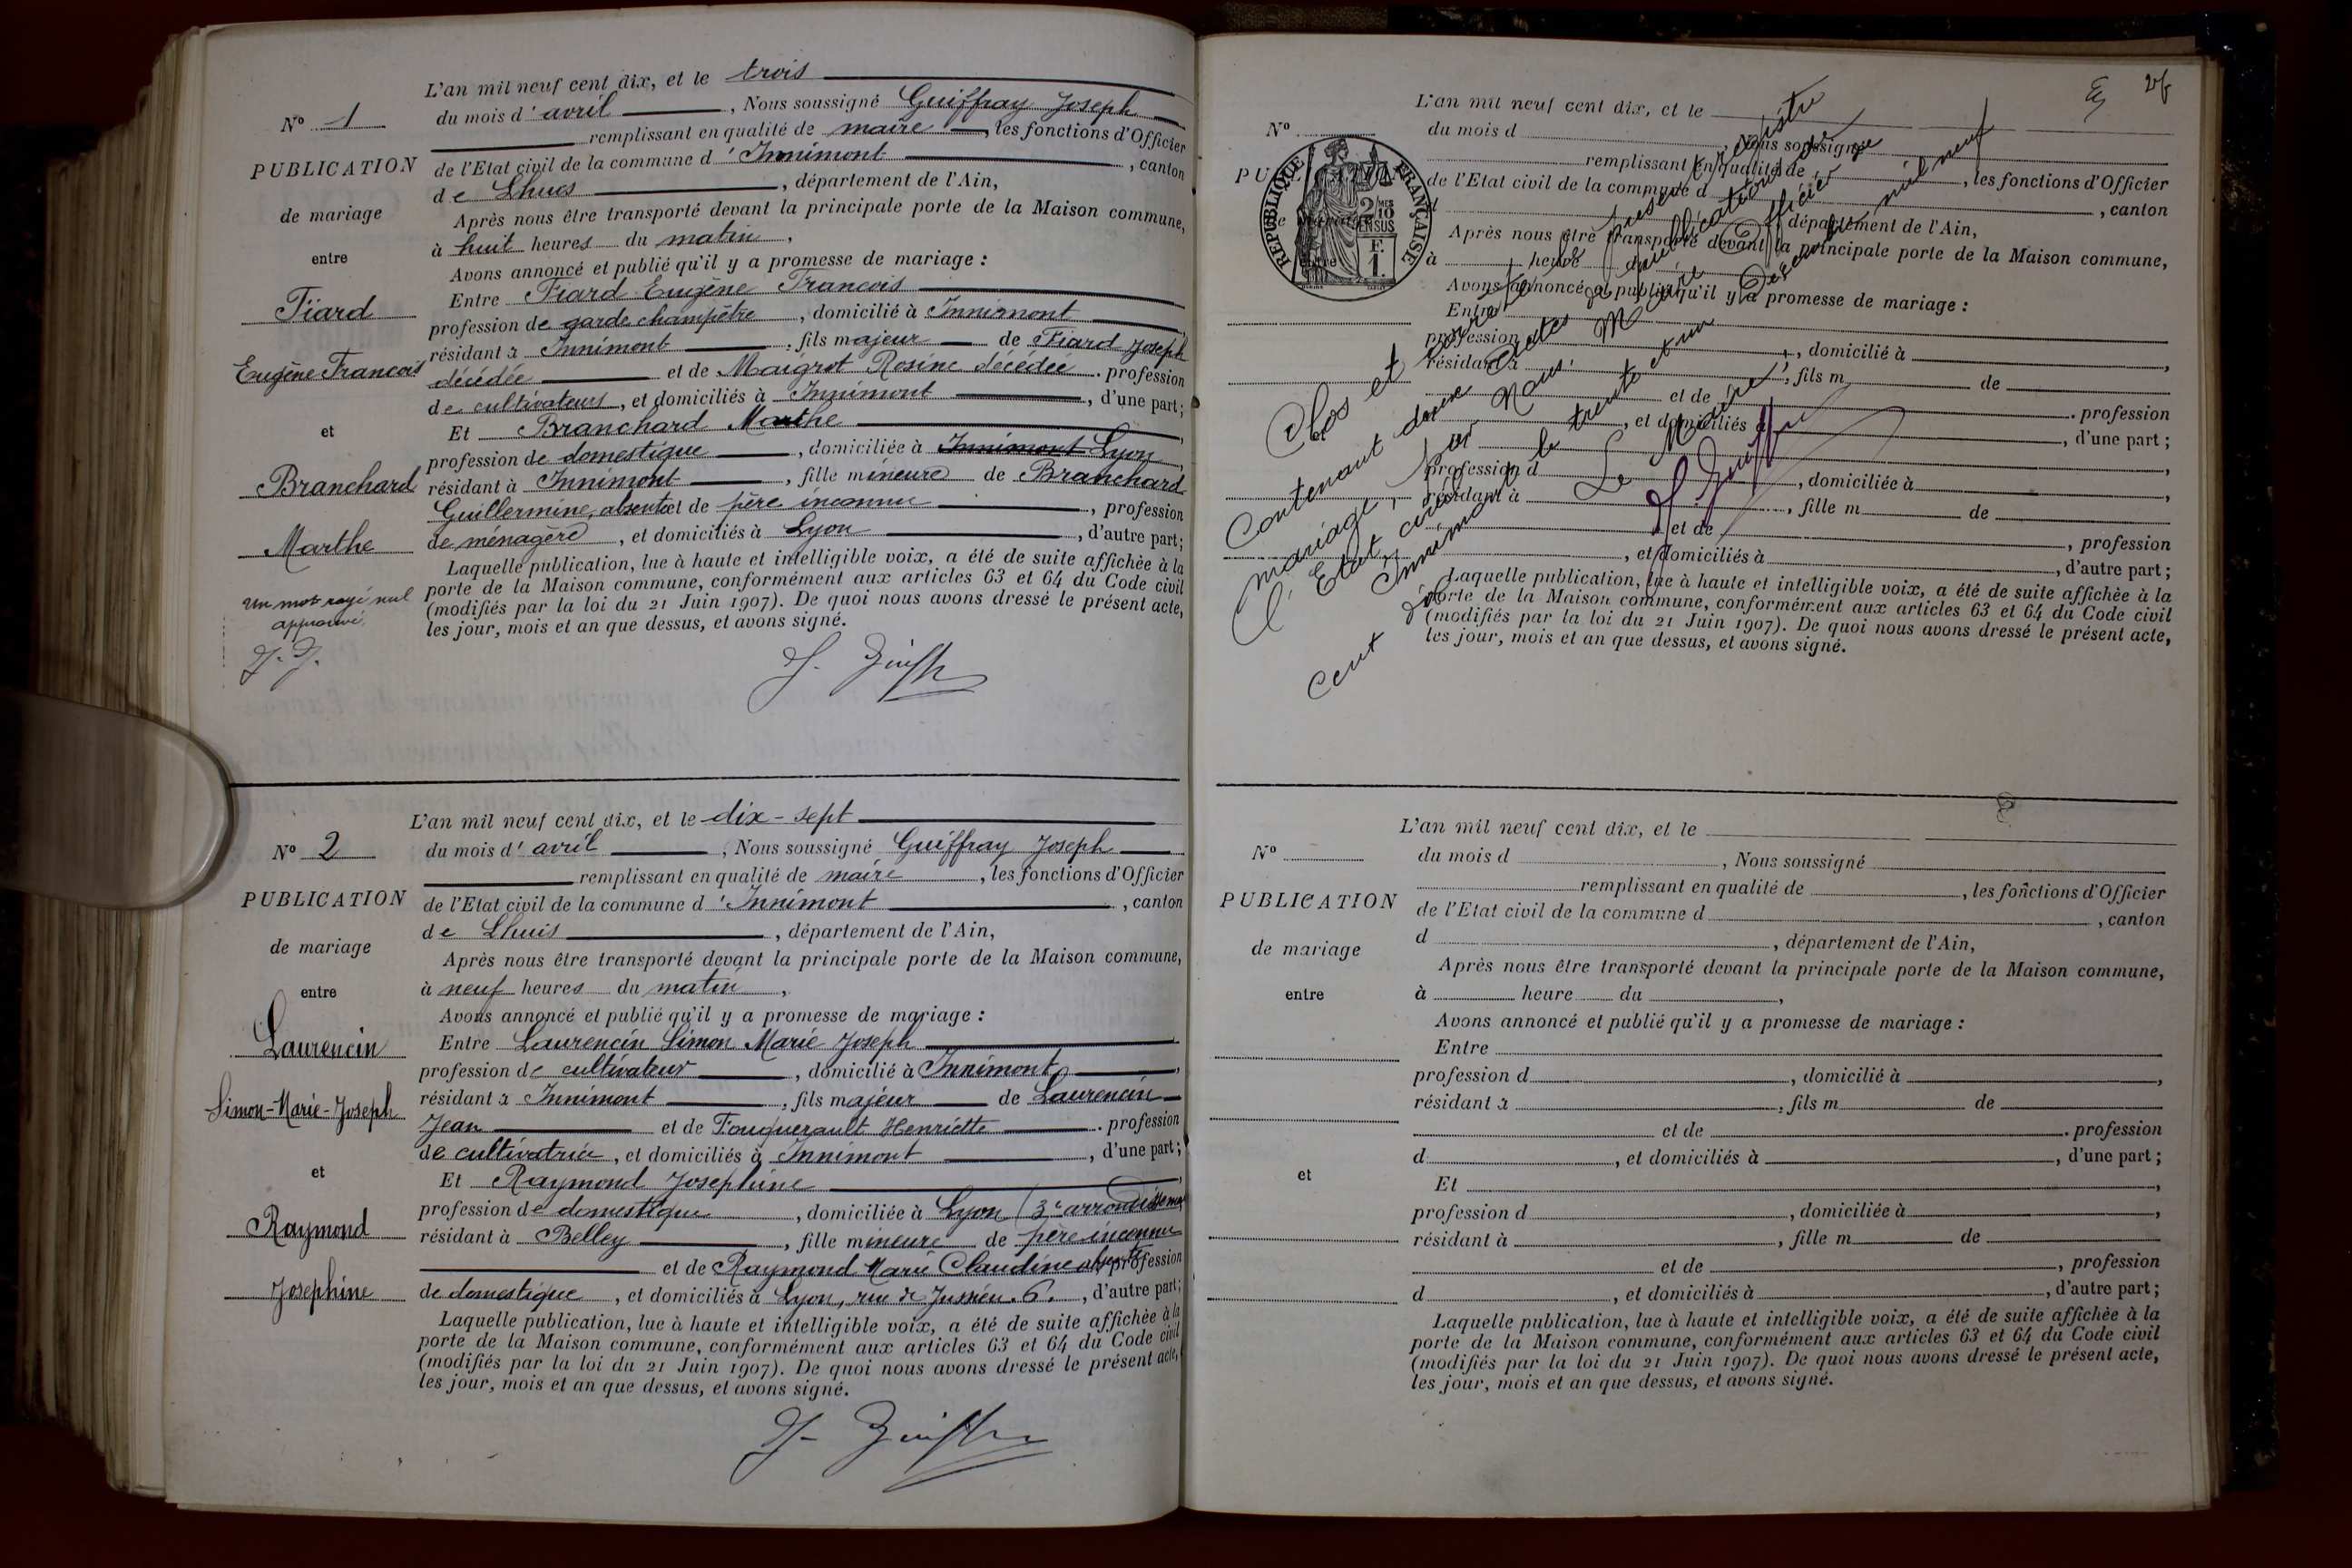 L'an mil neuf cent dix, et le trois
N° 1
du mois d'avril, Nous soussigné Guiffray Joseph
remplissant en qualité de maire, les fonctions d'Officier
PUBLICATION
de l'Etat civil de la commune d'Innimont, canton
de Lhuis, département de l'Ain,
de mariage
Après nous être transporté devant la principale porte de la Maison commune,
à huit heures du matin,
entre
Avons annoncé et publié qu'il y a promesse de mariage :
Fiard
Entre Fiard Eugène Francois
profession de garde champêtre, domicilié à Innimont,
Eugène Francois
résidant à Innimont, fils majeur de Fiard Joseph
décédée et de Maigrot Rosine décédée. profession
de cultivateurs, et domiciliés à Innimont, d'une part;
et
Et Branchard Marthe,
profession de domestique, domiciliée à Innimont Lyon,
Branchard
résidant à Innimont, fille mineure de Branchard
Guillermine, absente et de père inconnu, profession
Marthe
de ménagère, et domiciliés à Lyon, d'autre part;
Laquelle publication, lue à haute et intelligible voix, a été de suite affichée à la
porte de la Maison commune, conformément aux articles 63 et 64 du Code civil
(modifiés par la loi du 21 Juin 1907). De quoi nous avons dressé le présent acte,
les jour, mois et an que dessus, et avons signé.
Un mot rayé nul
approuvé.
L'an mil neuf cent dix, et le dix-sept
N° 2
du mois d'avril, Nous soussigné Guiffray Joseph
remplissant en qualité de maire, les fonctions d'Officier
PUBLICATION
de l'Etat civil de la commune d'Innimont, canton
de Lhuis, département de l'Ain,
de mariage
Après nous être transporté devant la principale porte de la Maison commune,
à neuf heures du matin,
entre
Avons annoncé et publié qu'il y a promesse de mariage :
Laurencin
Entre Laurencin Simon Marie Joseph
profession de cultivateur, domicilié à Innimont,
Simon-Marie-Joseph
résidant à Innimont, fils majeur de Laurencin
Jean et de Fouquerault Henriette. profession
de cultivatrice, et domiciliés à Innimont, d'une part;
et
Et Raymond Josephine,
Raymond
profession de domestique, domiciliée à Lyon (3e arrondissement
résidant à Belley, fille mineure de père inconnu
et de Raymond Marie Claudine absente profession
Josephine
de domestique, et domiciliés à Lyon, rue de Jussieu. 6., d'autre part;
Laquelle publication, lue à haute et intelligible voix, a été de suite affichée à la
porte de la Maison commune, conformément aux articles 63 et 64 du Code civil
(modifiés par la loi du 21 Juin 1907). De quoi nous avons dressé le présent acte,
les jour, mois et an que dessus, et avons signé.
L'an mil neuf cent dix, et le
N°
du mois d, Nous soussigné
remplissant en qualité de, les fonctions d'Officier
de l'Etat civil de la commune d, canton
d, département de l'Ain,
REPUBLIQUE FRANÇAISE
2/10 EN SUS
F. 1.
Après nous être transporté devant la principale porte de la Maison commune,
à heure du
Avons annoncé et publié qu'il y a promesse de mariage :
Entre
profession, domicilié à,
résidant à, fils m de
et de. profession
, et domiciliés à, d'une part;
profession d, domiciliée à,
résidant à, fille m de
et de, profession
, et domiciliés à, d'autre part;
Laquelle publication, lue à haute et intelligible voix, a été de suite affichée à la
porte de la Maison commune, conformément aux articles 63 et 64 du Code civil
(modifiés par la loi du 21 Juin 1907). De quoi nous avons dressé le présent acte,
les jour, mois et an que dessus, et avons signé.
Clos et arrêté le présent registre
Contenant deux actes de publications de
mariage, par Nous, Maire Officier de
l'Etat civil
Innimont le trente et un Décembre mil neuf
cent dix
Le Maire,
L'an mil neuf cent dix, et le
N°
du mois d, Nous soussigné
remplissant en qualité de, les fonctions d'Officier
PUBLICATION
de l'Etat civil de la commune d, canton
d, département de l'Ain,
de mariage
Après nous être transporté devant la principale porte de la Maison commune,
entre
à heure du,
Avons annoncé et publié qu'il y a promesse de mariage :
Entre
profession d, domicilié à,
résidant à, fils m de
et de. profession
d, et domiciliés à, d'une part;
et
Et,
profession d, domiciliée à,
résidant à, fille m de
et de, profession
d, et domiciliés à, d'autre part;
Laquelle publication, lue à haute et intelligible voix, a été de suite affichée à la
porte de la Maison commune, conformément aux articles 63 et 64 du Code civil
(modifiés par la loi du 21 Juin 1907). De quoi nous avons dressé le présent acte,
les jour, mois et an que dessus, et avons signé.